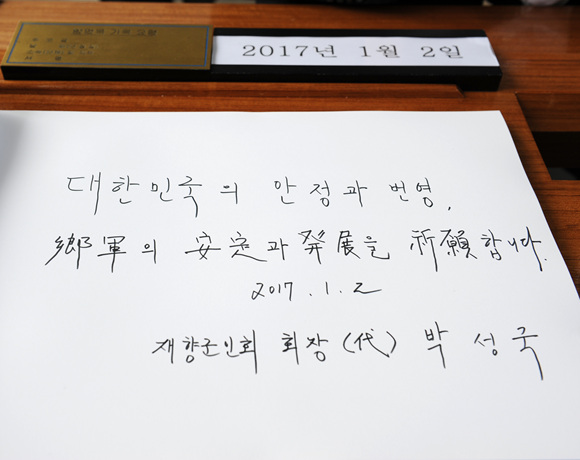 방명록 기록 요령
2017년 1월 2일
대한민국의 안정과 번영,
鄕軍의 安定과 発展을 祈願합니다.
2017.1.2
재향군인회 회장(代) 박성국